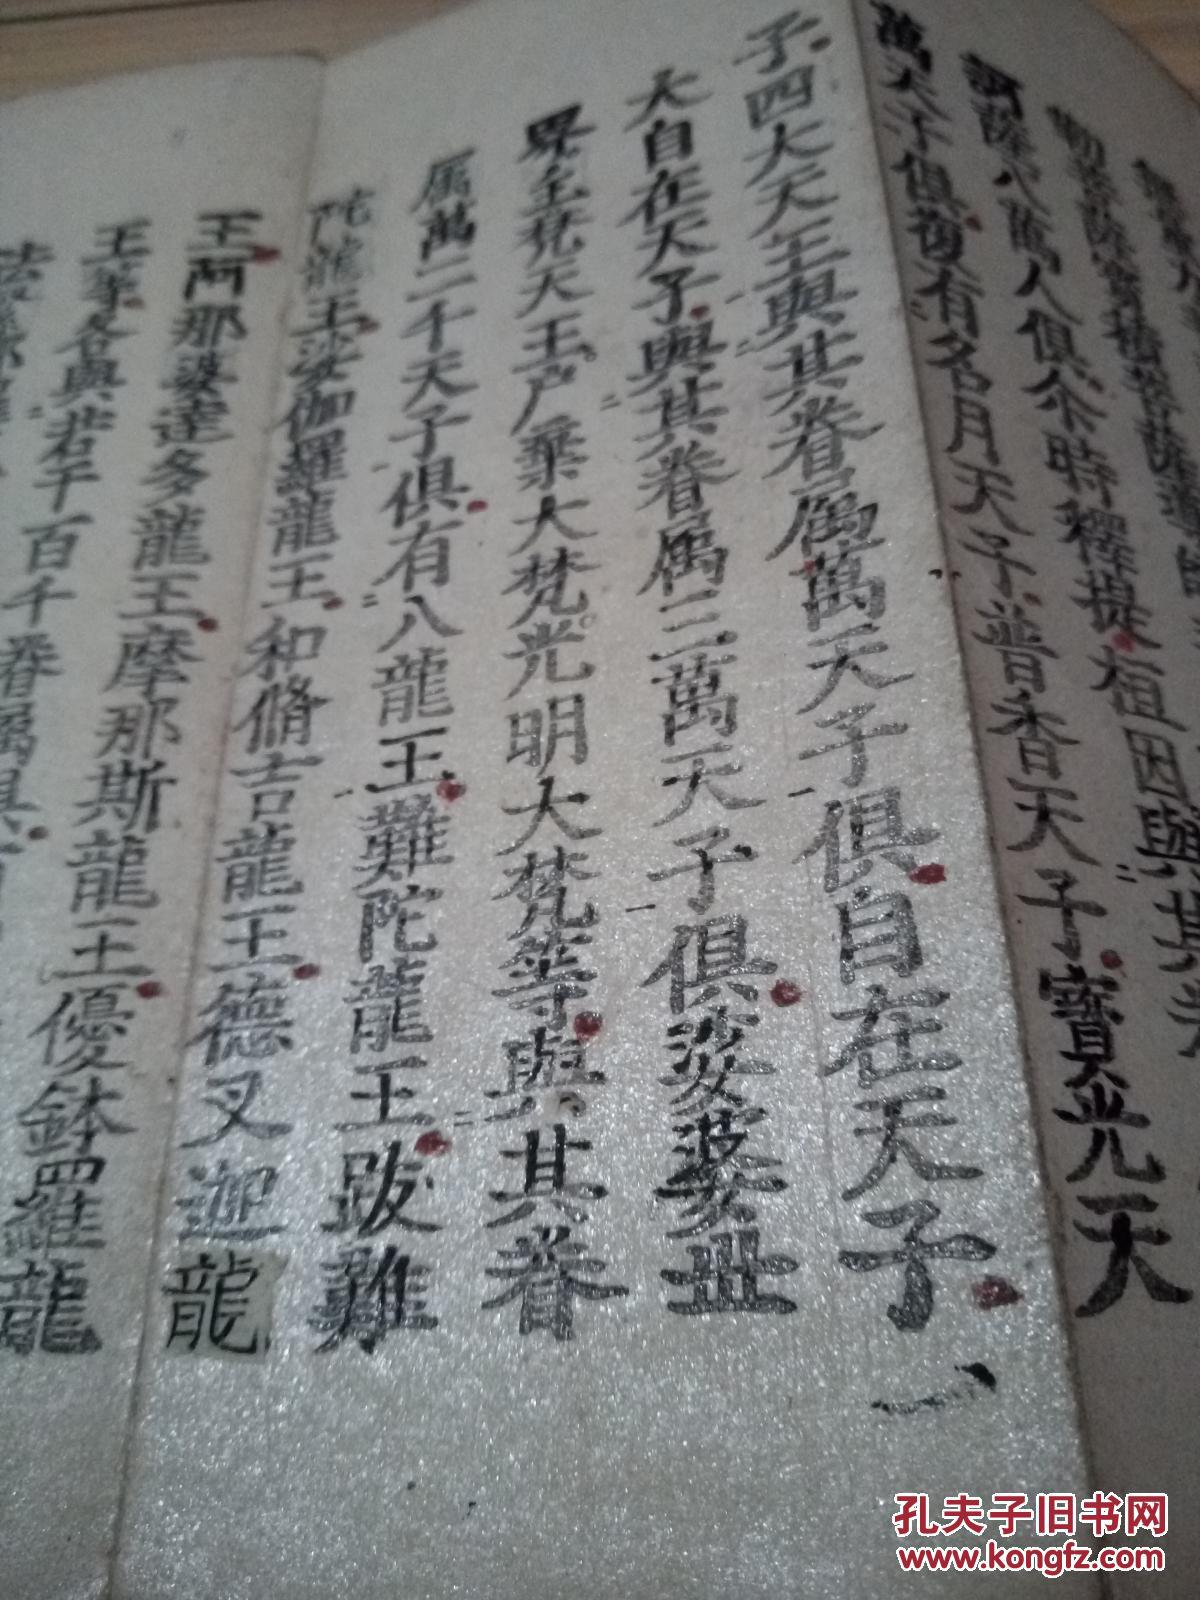 菩薩八萬人俱尒時釋提桓因與其眷
萬天子俱復有名月天子普香天子寶光天
子四大天王與其眷属萬天子俱自在天子
大自在天子與其眷属三萬天子俱娑婆世
界主梵天王尸棄大梵光明大梵等與其眷
属萬二千天子俱有八龍王難陀龍王跋難
陀龍王娑伽羅龍王和脩吉龍王德叉迦龍
王阿那婆達多龍王摩那斯龍王優鉢羅龍
王等各與若干百千眷屬俱
孔夫子旧书网
www.kongfz.com